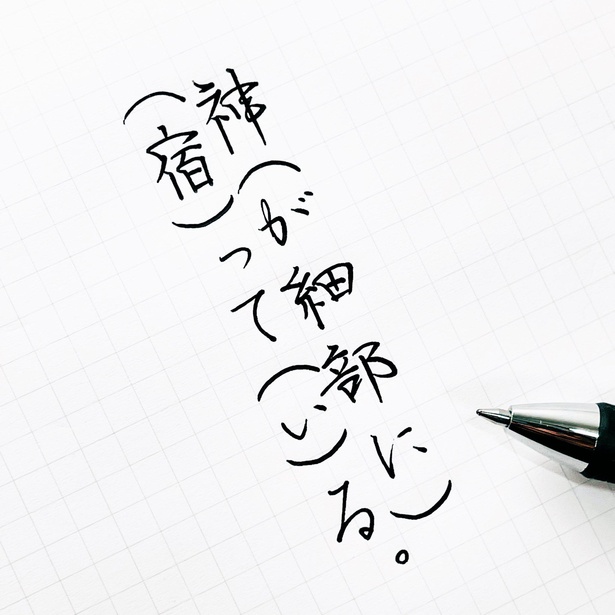 神（が細部に）
（宿）って（い）る。